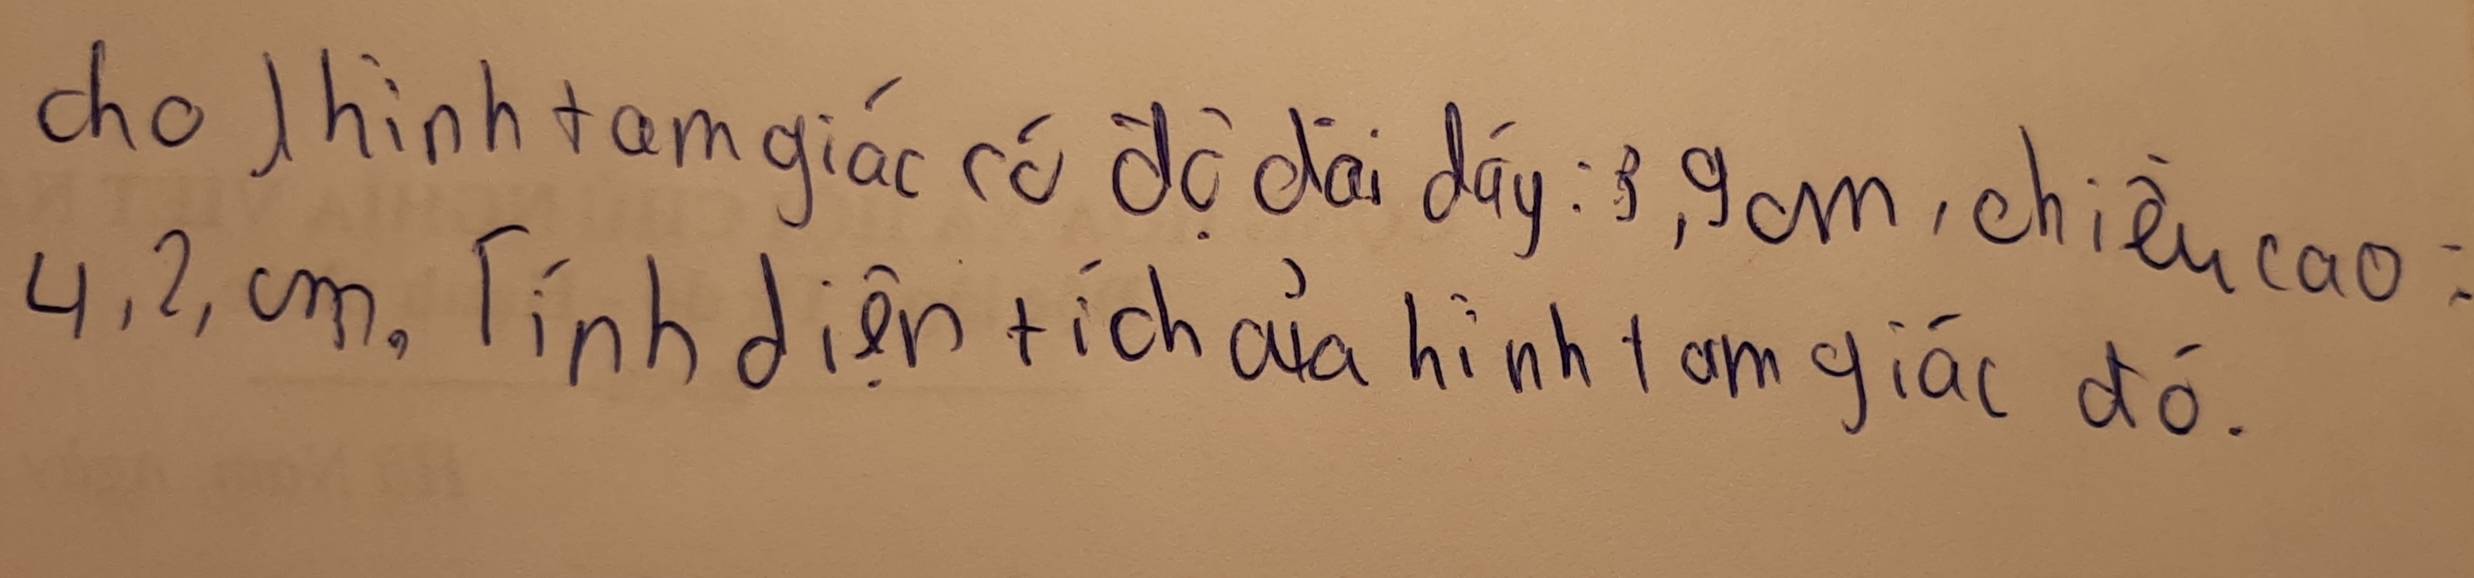 cho 1 hình tam giác có độ dài đáy: 3,9cm, chiều cao:
4,2, cm. Tính diện tích của hình tam giác đó.